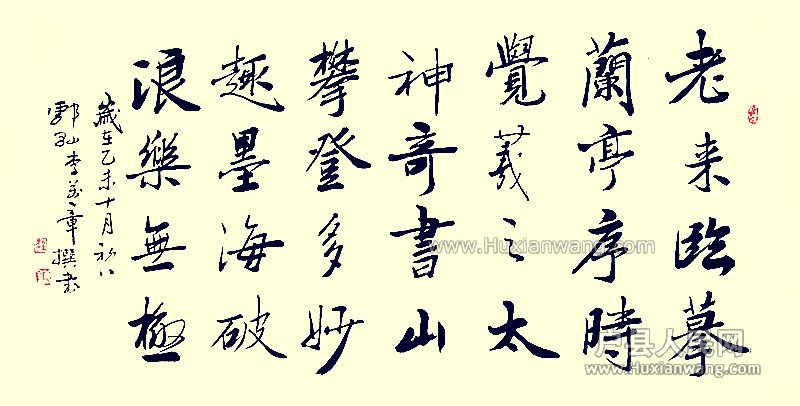 老来臨摹
蘭亭序時
覺羲之太
神奇書山
攀登多妙
趣墨海破
浪樂無極
歲在乙未十月初八
鄠李章撰书
www.Huxianwang.com
户县人民网
www.Huxianwang.com